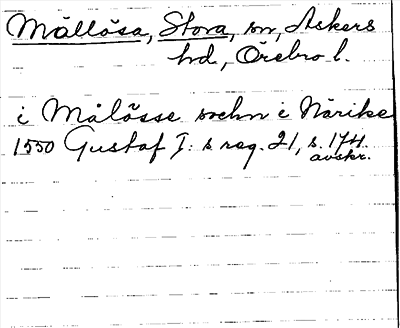 Mällösa, Stora, sn, Askers
hd, Örebro l.
i Målösse sochn i Närike
1550 Gustaf I:s reg. 21, s. 174.
avskr.